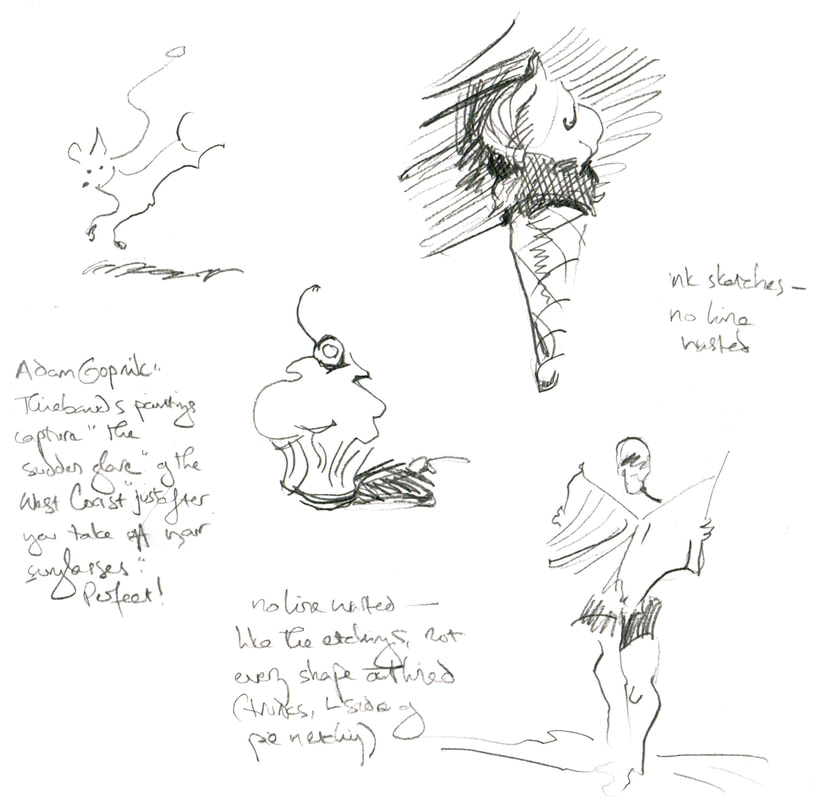 Adam Gopnik:
Thiebaud's paintings
capture "the
sudden glare" of the
West Coast "just after
you take off your
sunglasses."
Perfect!
ink sketches —
no line
wasted
no line wasted —
like the etchings, not
every shape outlined
(trunks, L side of
pie in etching)